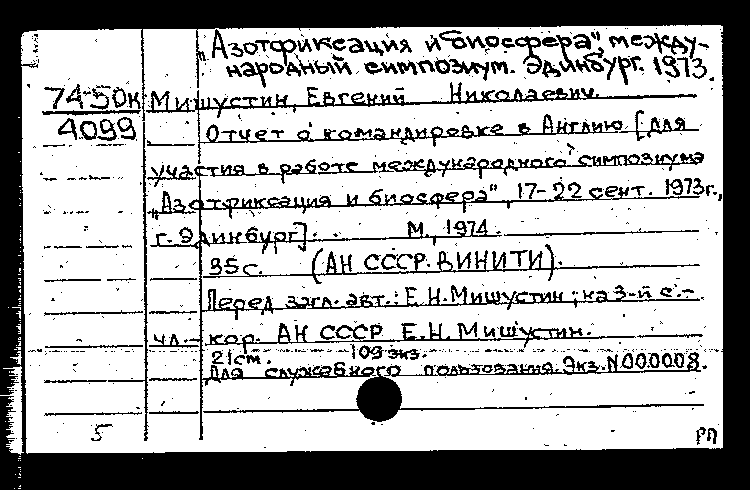 „Азотфиксация и биосфера", между-
народный симпозиум. Эдинбург. 1973.
74-50к Мишустин, Евгений Николаевич.
4099 Отчет о командировке в Англию [для
участия в работе международного симпозиума
„Азотфиксация и биосфера", 17-22 сент. 1973г.,
г. Эдинбург]. М., 1974.
35с. (АН СССР. ВИНИТИ).
Перед загл. авт.: Е.Н.Мишустин; на 3-й с.-
чл.-кор. АН СССР Е.Н. Мишустин.
21см. 109 экз.
Для служебного пользования. Экз. N000008.
5 РП